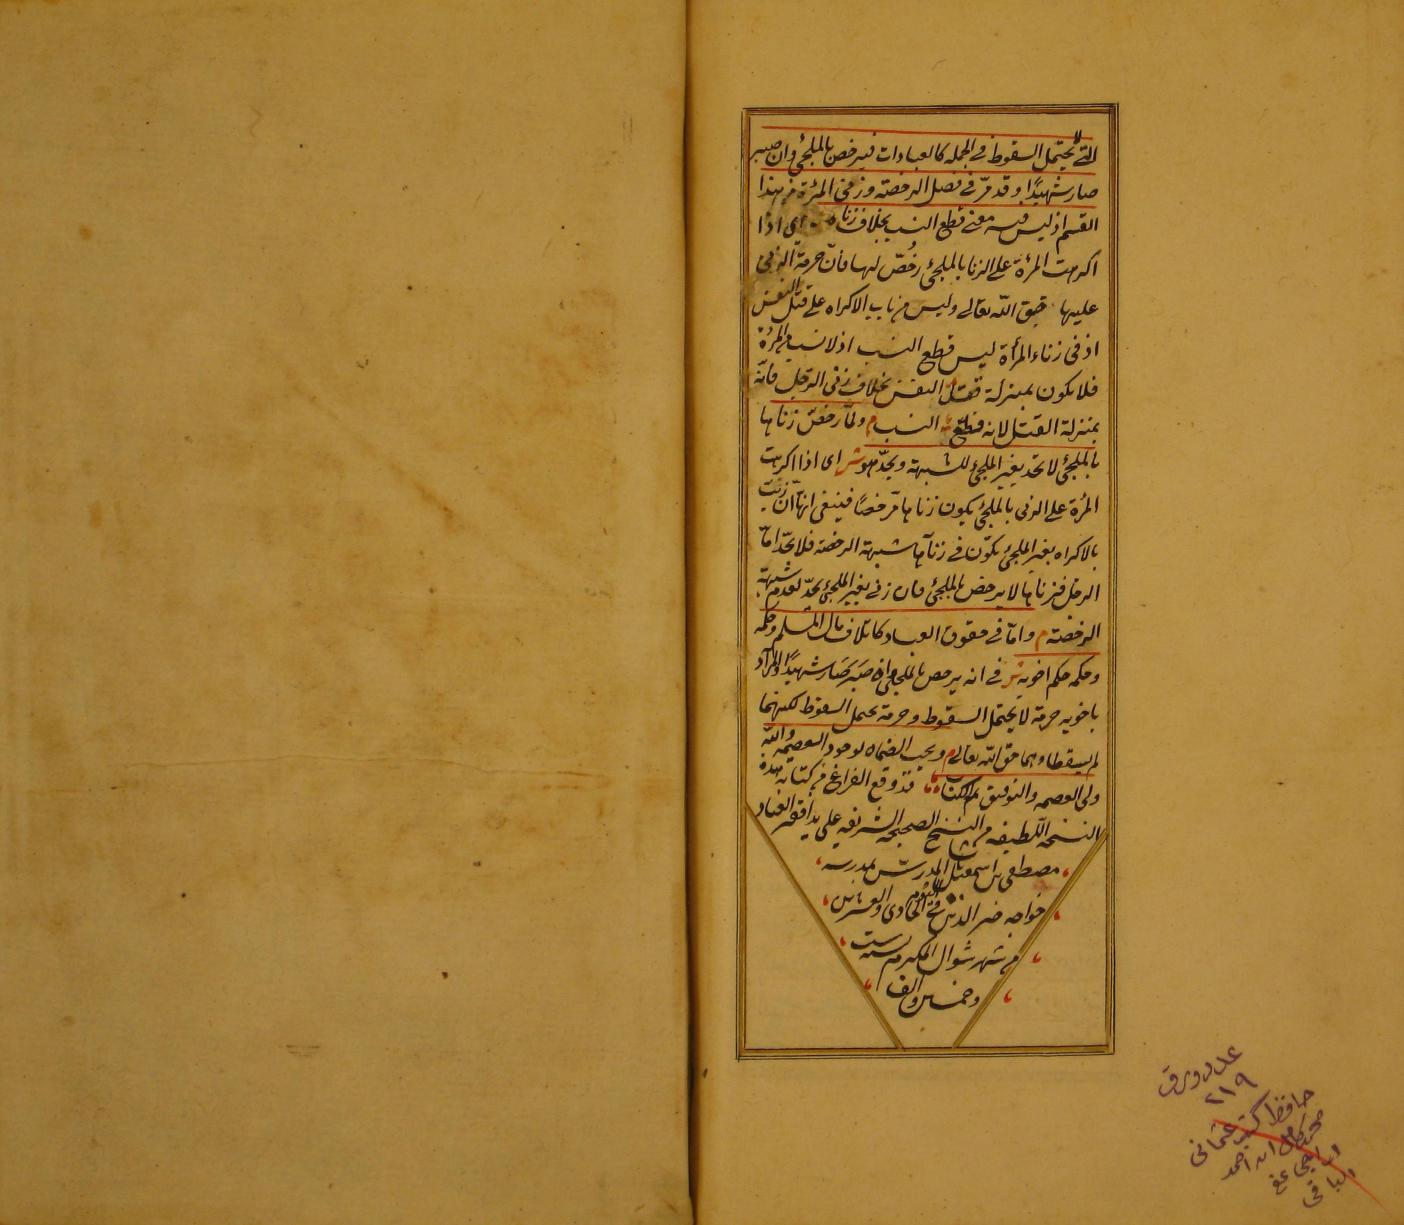 التى لا يحتمل السقوط فى الجملة كالعبادات فيرخص بالملجئ وان صبر
صار شهيدًا وقد مرّ فى فصل الرخصة وزنى المرئة من هذا
القسم اذ ليس فيه معنى قطع النسب بخلاف زناه اى اذا
اكرهت المرئة على الزنا بالملجئ رخّص لها فانّ حرمة الزنى
عليها حق الله تعالى وليس من باب الاكراه على قتل النفس
اذ فى زناء المرأة ليس قطع النسب اذ لا نسب من المرئة
فلا يكون بمنزلة قتل النفس بخلاف زنى الرجل فانّه
بمنزلة القتل لانه قطع النسب م ولمّا رخص زناها
بالملجئ لا تحد بغير الملجئ للشبهة ويحدّ هو ش اى اذا اكرهت
المرئة على الزنى بالملجئ يكون زناها مرخصًا فينبغى انها ان زنت
بالاكراه بغير الملجئ يكون فى زناها شبهة الرخصة فلا تحدّ امّا
الرجل فزناها لا يرخص بالملجئ فان زنى بغير الملجئ يحدّ لعدم شبهة
الرخصة م وامّا فى حقوق العباد كاتلاف مال المسلم وحكمه
وحكمه حكم اخويه ش فى انه يرخص بالملجئ وان صبر صار شهيدًا والمراد
باخويه حرمة لا يحتمل السقوط وحرمة يحتمل السقوط لكنهما
لم يسقطا وهما حق الله تعالى م ويجب الضمان لوجود العصمة والله
ولى العصمة والتوفيق تم الكتاب قد وقع الفراغ من كتابة هذه
النسخة اللطيفة من النسخ الصحيحة الشريفة على يد افقر العباد
مصطفى بن اسمعيل المدرس بمدرسه
خواجه خير الدين فى اليوم الحادى والعشرين
من شهر شوال المكرم سنه ست
وخمسين والف
عدد اوراق
٢١٩
حافظ كتب عثمانى